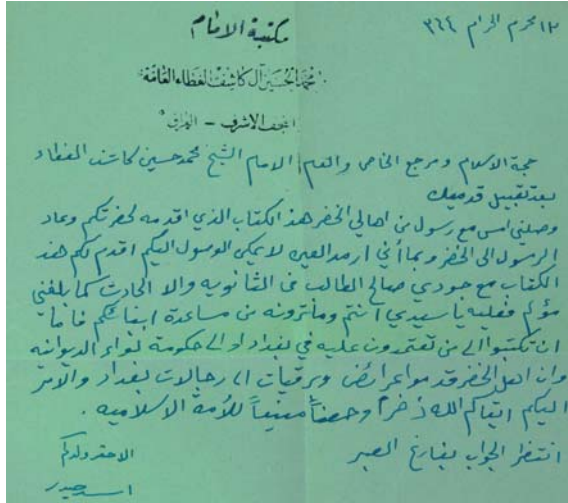 ١٢ محرم الحرام ٣٦٤
مكتبة الامام
محمد الحسين آل كاشف الغطاء العامة
النجف الاشرف - العراق
حجة الاسلام ومرجع الخاص والعام الامام الشيخ محمد حسين كاشف الغطاء
بعد تقبيل قدميك
وصلني امس مع رسول من اهالي الخضر هذ الكتاب الذي اقدمه لحضرتكم وعاد
الرسول الى الخضر وبما أني ارمد العين لا يمكني الوصول اليكم اقدم لكم هذ
الكتاب مع جودي صالح الطالب في الثانويه والا الحادث كما بلغني
مؤلم فعليه يا سيدي انتم وما ترونه من مساعدة ابنائكم فاما
ان تكتبوا الى من تعتمدون عليه في بغداد او الى حكومة لواء الديوانيه
وان اهل الخضر قدموا عرائض وبرقيات الى رجالات بغداد والامر
اليكم ابقاكم الله ذخراً وحصناً منيعاً للأمة الاسلاميه .
انتظر الجواب بفارغ الصبر
الاحقر ولدكم
اسد حيدر